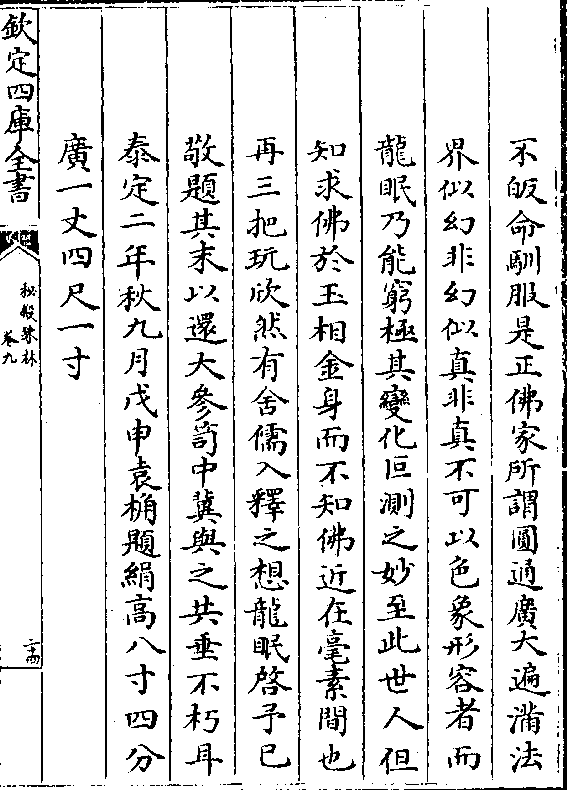 不皈命馴服是正佛家所謂圓通廣大遍滿法
界似幻非幻似真非真不可以色象形容者而
龍眠乃能窮極其變化叵測之妙至此世人但
知求佛於玉相金身而不知佛近在毫素間也
再三把玩欣然有舍儒入釋之想龍眠啓予已
敬題其末以還大參笴中冀與之共垂不朽耳
泰定二年秋九月戊申袁桷題絹高八寸四分
廣一丈四尺一寸
欽定四庫全書
秘殿珠林
卷九